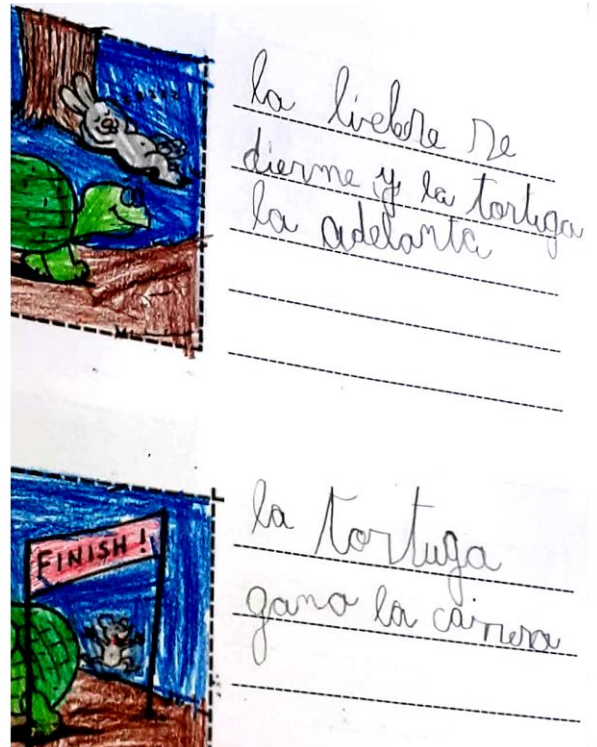 zzzzzz
la livebre se
dierme y la tortuga
la adelanta
FINISH!
la tortuga
gano la cairrera